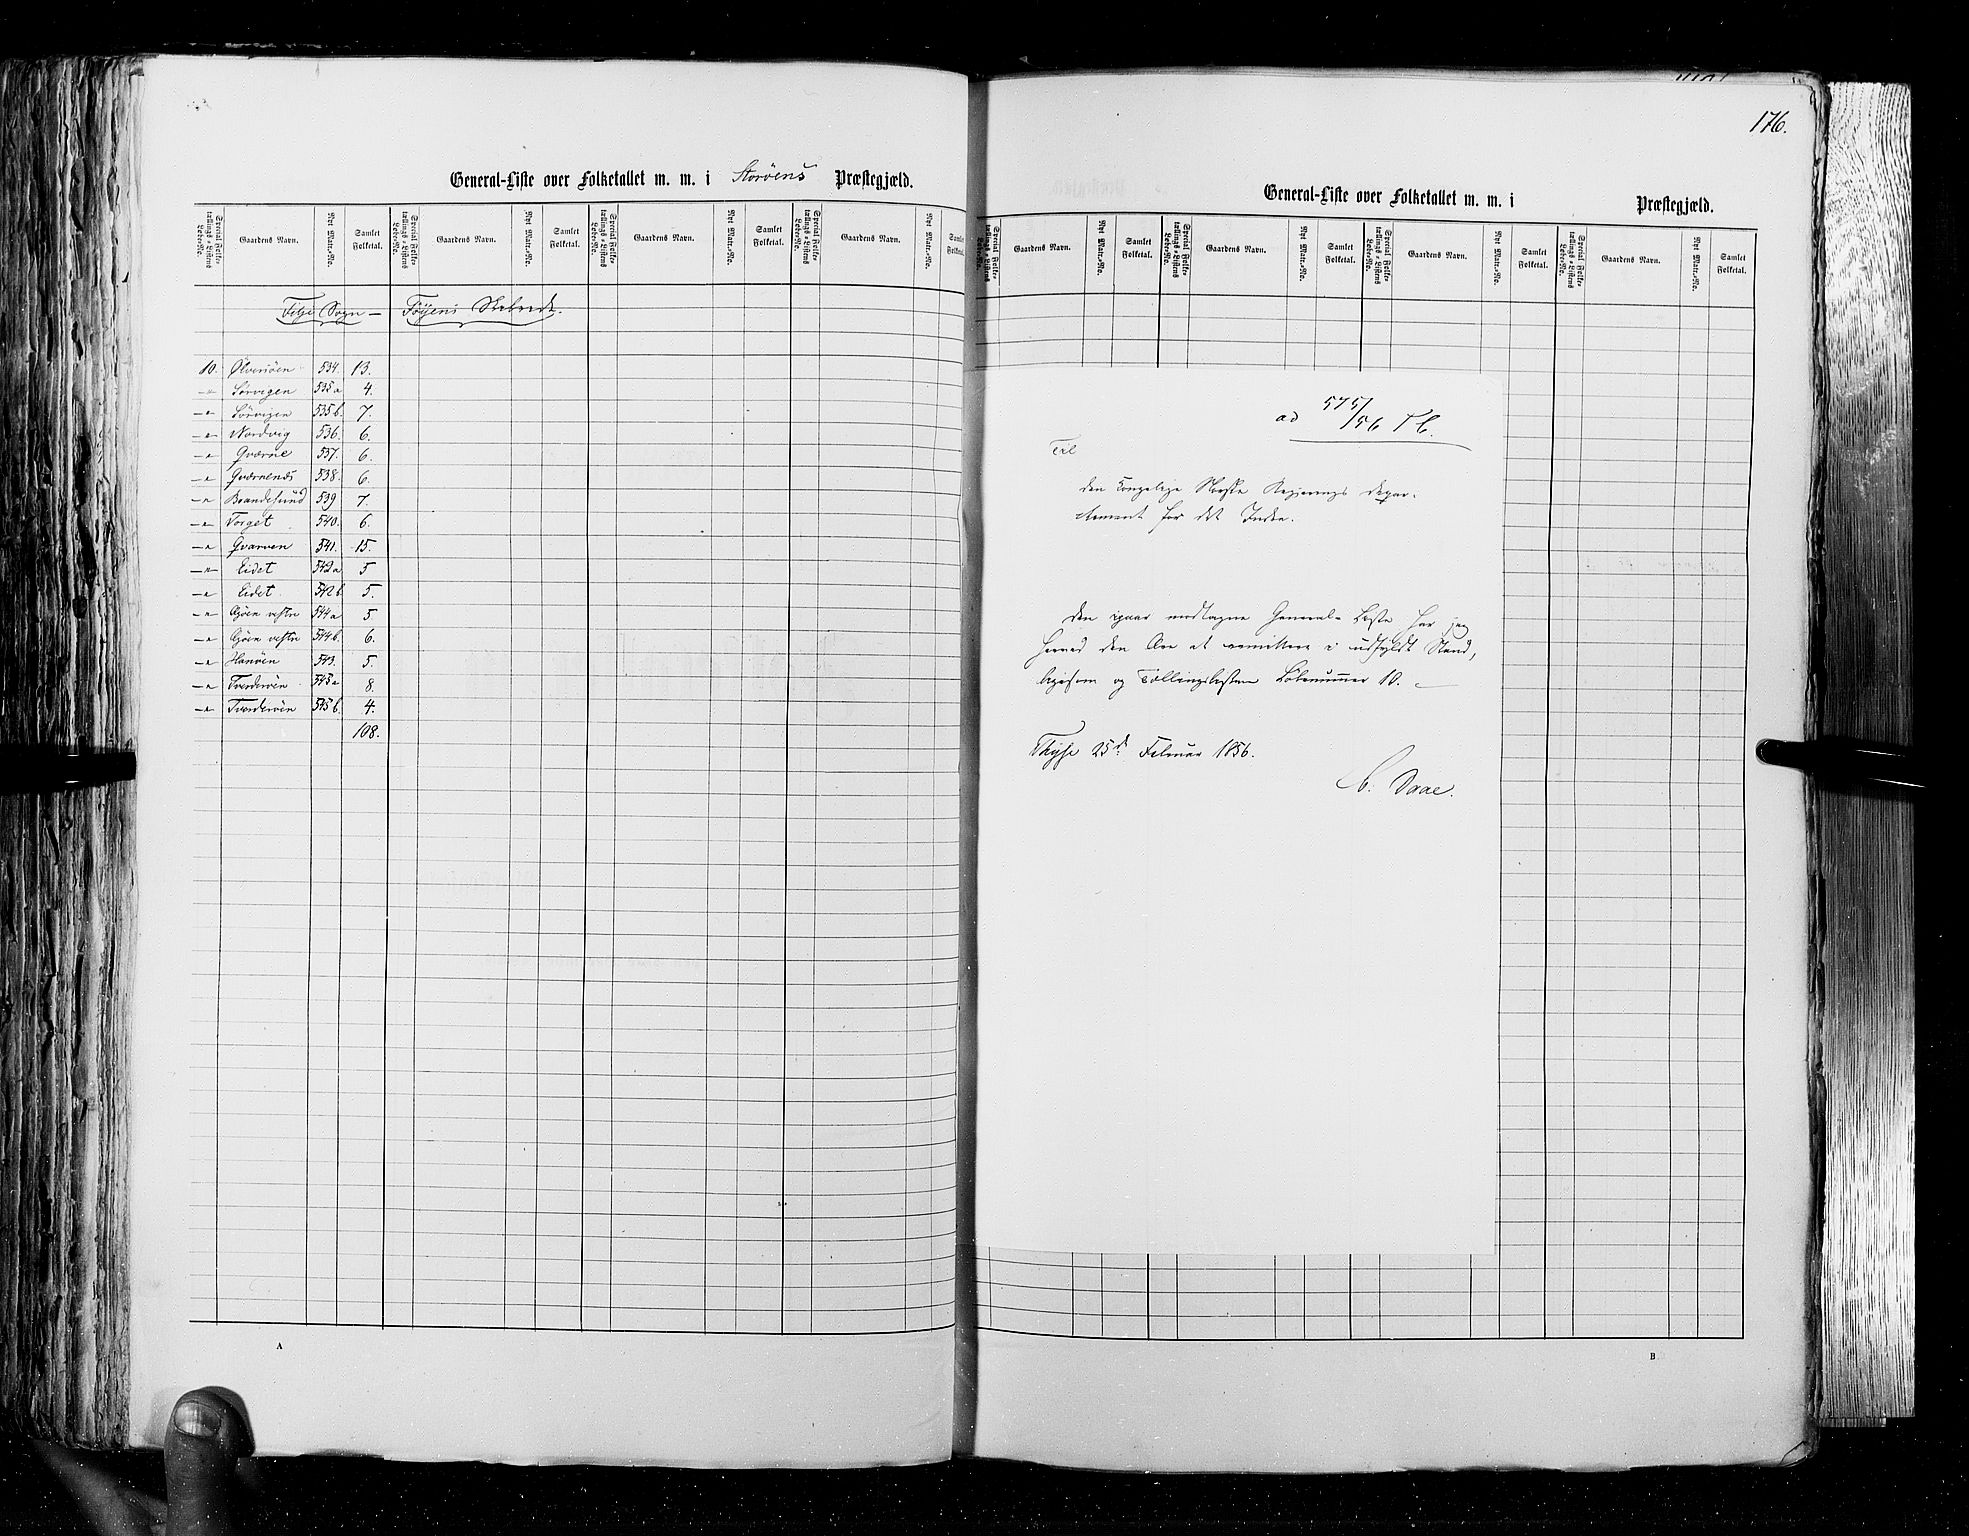 176.
General-Liste over Folketallet m. m. i Storöens Præstegjæld.
Special Folketællings-Listens Løbe-No. Gaardens Navn. Nyt Matr.-No. Samlet Folketal. Special Folketællings-Listens Løbe-No. Gaardens Navn. Nyt Matr.-No. Samlet Folketal. Special Folketællings-Listens Løbe-No. Gaardens Navn. Nyt Matr.-No. Samlet Folketal. Special Folketællings-Listens Løbe-No. Gaardens Navn. Nyt Matr.-No. Samlet Folketal.
Fitje Sogn —
10. 534. 13.
—"— Sørvigen 535a 4.
—"— Sørvigen 535b. 7.
—"— Nordvig 536. 6.
—"— Qværne 537. 6.
—"— Qværnenes 538. 6.
—"— Brandesund 539 7.
—"— Torget 540. 6.
—"— Qvarven 541. 15.
—"— Eidet 542a 5
—"— Eidet. 542b 5.
—"— vestre 544a 5
—"— vestre 544b. 6.
—"— 543. 5.
—"— Tverderöen 545a 8.
—"— Tverderöen 545b. 4.
108.
A
General-Liste over Folketallet m. m. i Præstegjæld.
Special Folketællings-Listens Løbe-No. Gaardens Navn. Nyt Matr.-No. Samlet Folketal. Special Folketællings-Listens Løbe-No. Gaardens Navn. Nyt Matr.-No. Samlet Folketal. Special Folketællings-Listens Løbe-No. Gaardens Navn. Nyt Matr.-No. Samlet Folketal. Special Folketællings-Listens Løbe-No. Gaardens Navn. Nyt Matr.-No. Samlet Folketal.
ad 575/56 T C.
Til
den Kongelige Norske Regjerings Depar-
tement for det Indre.
Den igaar modtagne General-Liste har jeg
herved den Ære at remittere i udfyldt Stand,
ligesom og Tællingslisten Löbenummer 10. —
25de Februar 1856.
C. Daae.
B